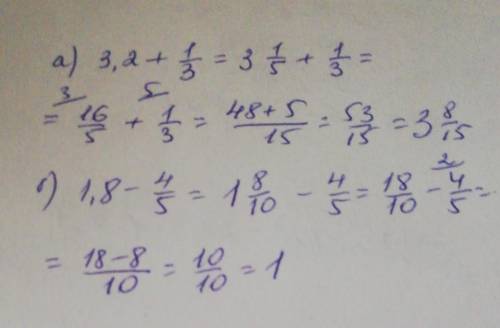 а) 3,2 + 1/3 = 3 1/5 + 1/3 =
3 5
= 16/5 + 1/3 = 48+5/15 = 53/15 = 3 8/15
2
б) 1,8 - 4/5 = 1 8/10 - 4/5 = 18/10 - 4/5 =
= 18-8/10 = 10/10 = 1